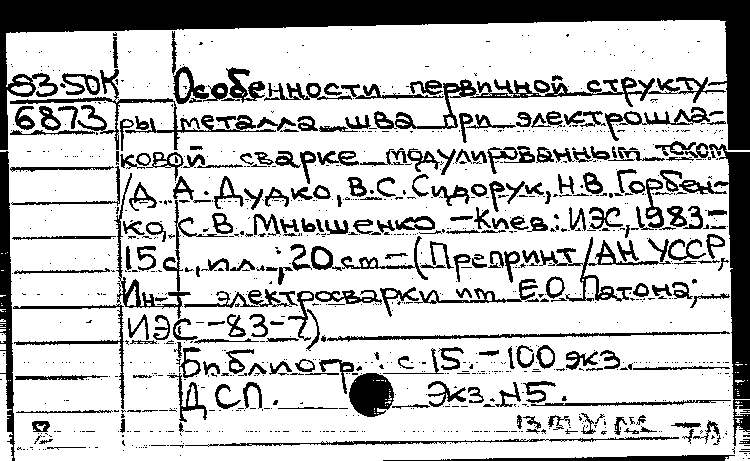 83-50К Особенности первичной структу-
6873 ры металла шва при электрошла-
ковой сварке модулированным током
/Д. А. Дудко, В. С. Сидорук, Н. В. Горбен-
ко, С. В. Мнышенко. - Киев: ИЭС, 1983.-
15 с., ил.; 20 см - (Препринт / АН УССР,
Ин-т электросварки им. Е. О. Патона;
ИЭС-83-7).
Библиогр.: с. 15. - 100 экз.
ДСП. Экз. N5.